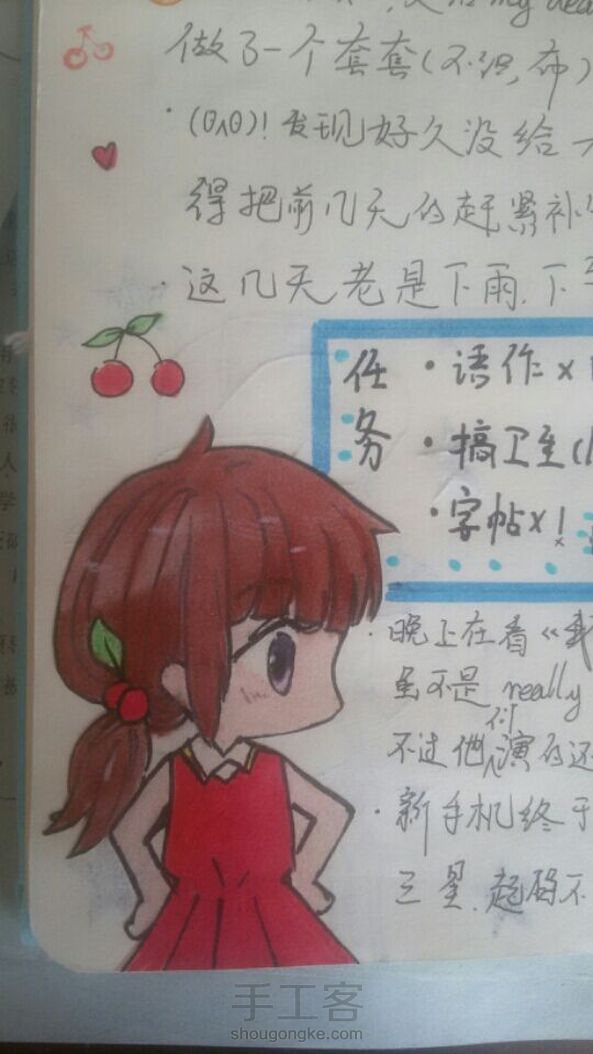 做了一个套套(不织布)
·(θ∧θ)! 发现好久没给
得把前几天的赶紧补
·这几天老是下雨.下
任务
·语作x
·搞卫生(
·字帖x1
·晚上在看《我
虽不是 really
不过他们演的还
·新手机终于
三星.起码不
手工客
shougongke.com